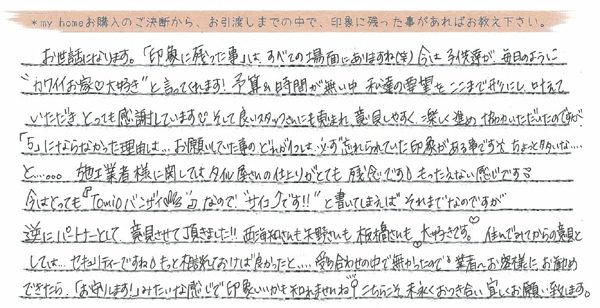 *my homeお購入のご決断から、お引渡しまでの中で、印象に残った事があればお教え下さい。
お世話になります。「印象に残った事」は、すべての場面にありますね(笑) 今は子供達が毎日のように
"カワイイお家♡大好き"と言ってくれます! 予算や時間が無い中 私達の要望をここまで形にし、叶えて
いただき、とっても感謝しています。そして良いスタッフさんにも恵まれ 意見しやすく楽しく進め 協力いただいたのですが
「5」にならなかった理由は…お願いしていた事のどれか1つは必ず忘れられていた印象がある事です ちょっと多いな…
と… 施工業者様に関しては タイル屋さんの仕上りがとても残念です! もったえない感じです
今はとっても『Tomioバンザイ』なので"サイコーです!!"と書いてしまえば それまでなのですが
逆にパートナーとして 意見させて頂きました!! 西海和さんも木野さんも板橋さんも 大好きです。 住んでみてからの意見と
しては…セキュリティーですね もっと相談しておけば良かったと…受け合わせの中で無かったので 業者へお客様にお勧め
できたら、「お守ります!」みたいな感じで印象いいかも知れませんね! こちらこそ 末永くお付き合い 宜しくお願い致します。